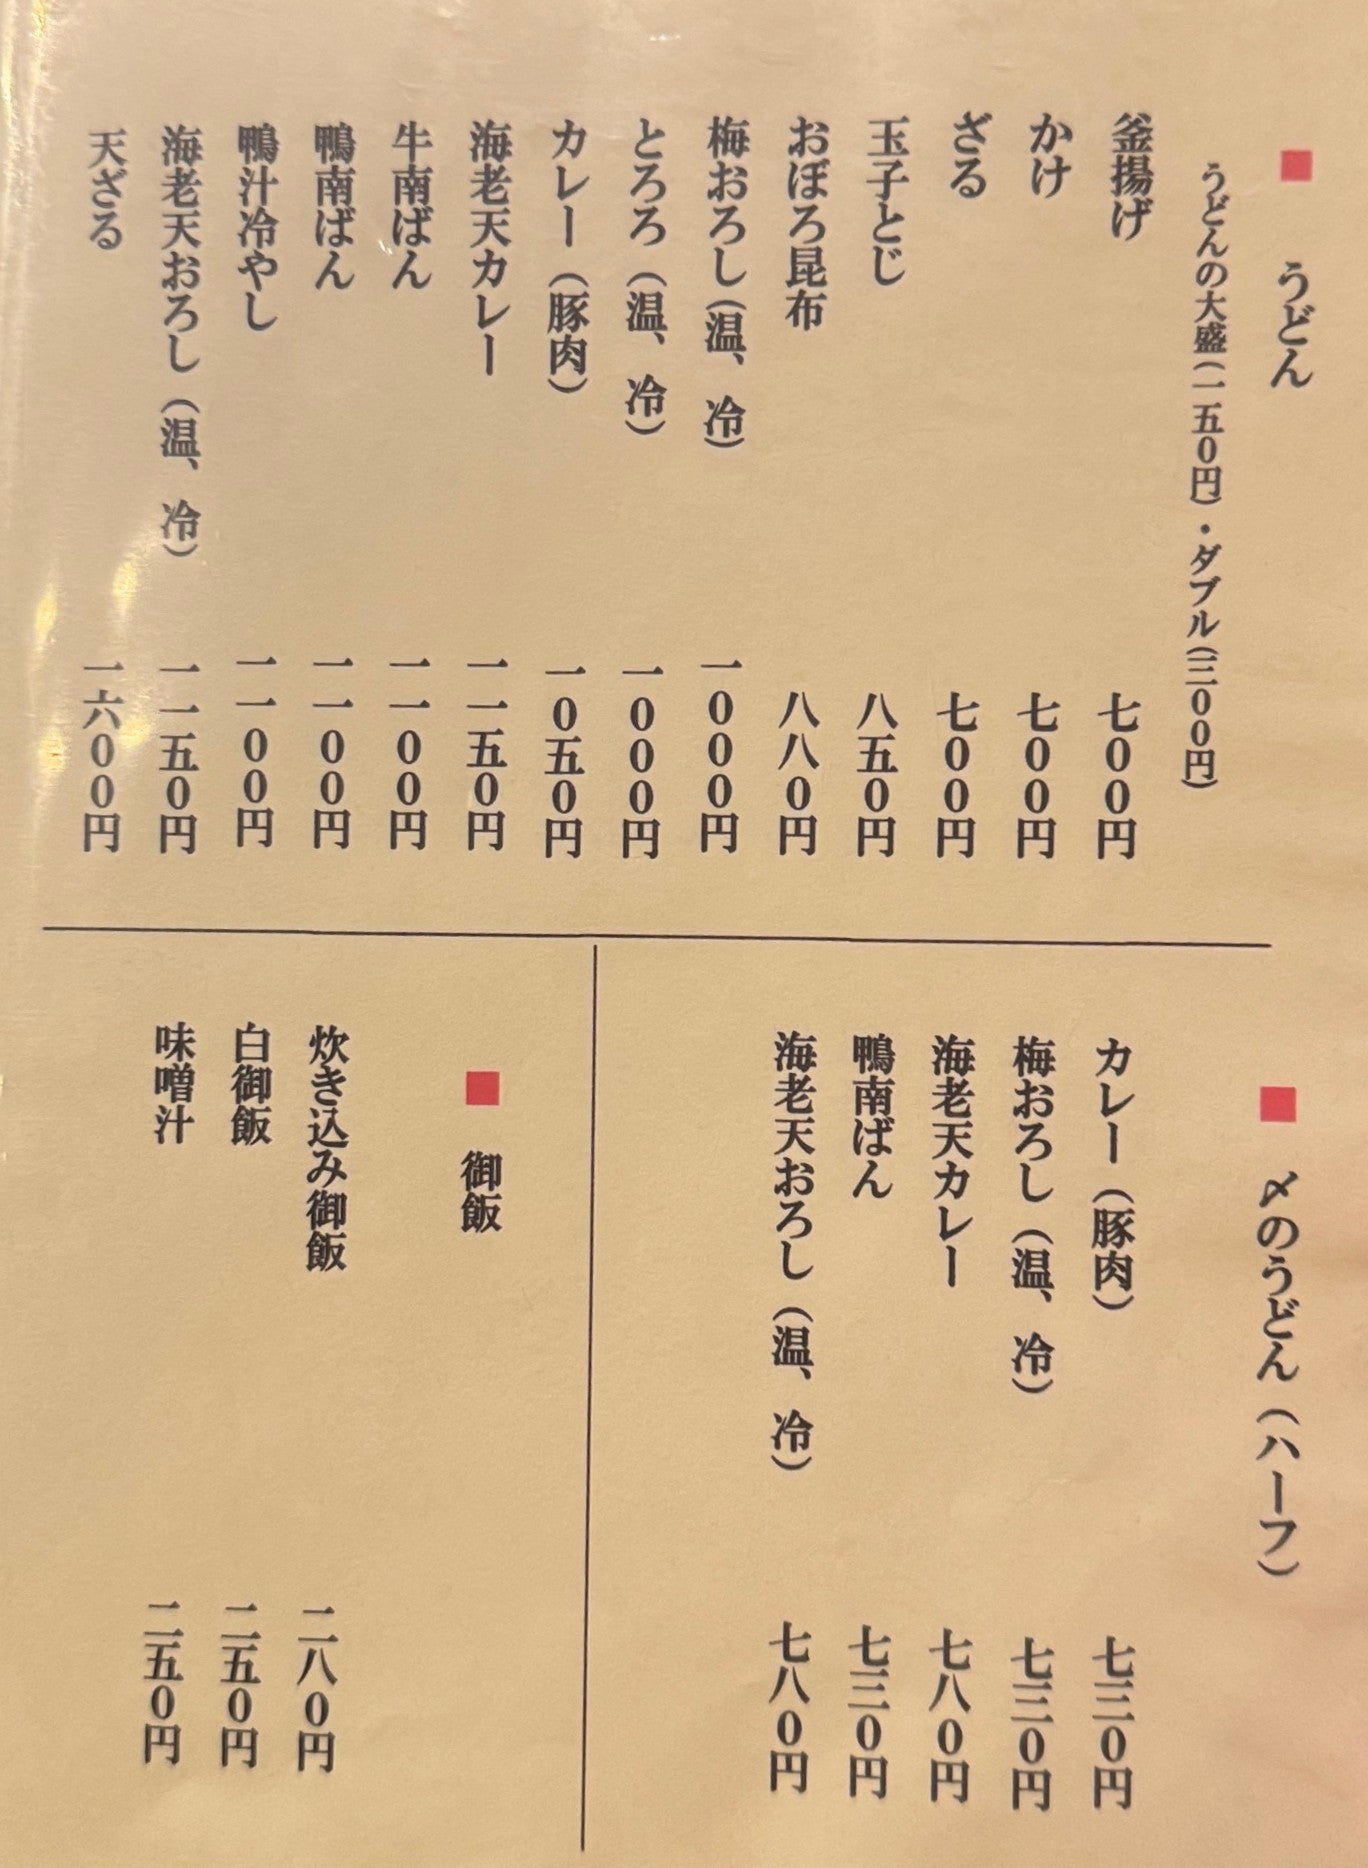 ■ うどん
うどんの大盛(一五0円)・ダブル(三00円)
釜揚げ 七00円
かけ 七00円
ざる 七00円
玉子とじ 八五0円
おぼろ昆布 八八0円
梅おろし(温、冷) 一000円
とろろ(温、冷) 一000円
カレー(豚肉) 一0五0円
海老天カレー 一一五0円
牛南ばん 一一00円
鴨南ばん 一一00円
鴨汁冷やし 一一00円
海老天おろし(温、冷) 一一五0円
天ざる 一六00円
■ 〆のうどん(ハーフ)
カレー(豚肉) 七三0円
梅おろし(温、冷) 七三0円
海老天カレー 七八0円
鴨南ばん 七三0円
海老天おろし(温、冷) 七八0円
■ 御飯
炊き込み御飯 二八0円
白御飯 二五0円
味噌汁 二五0円